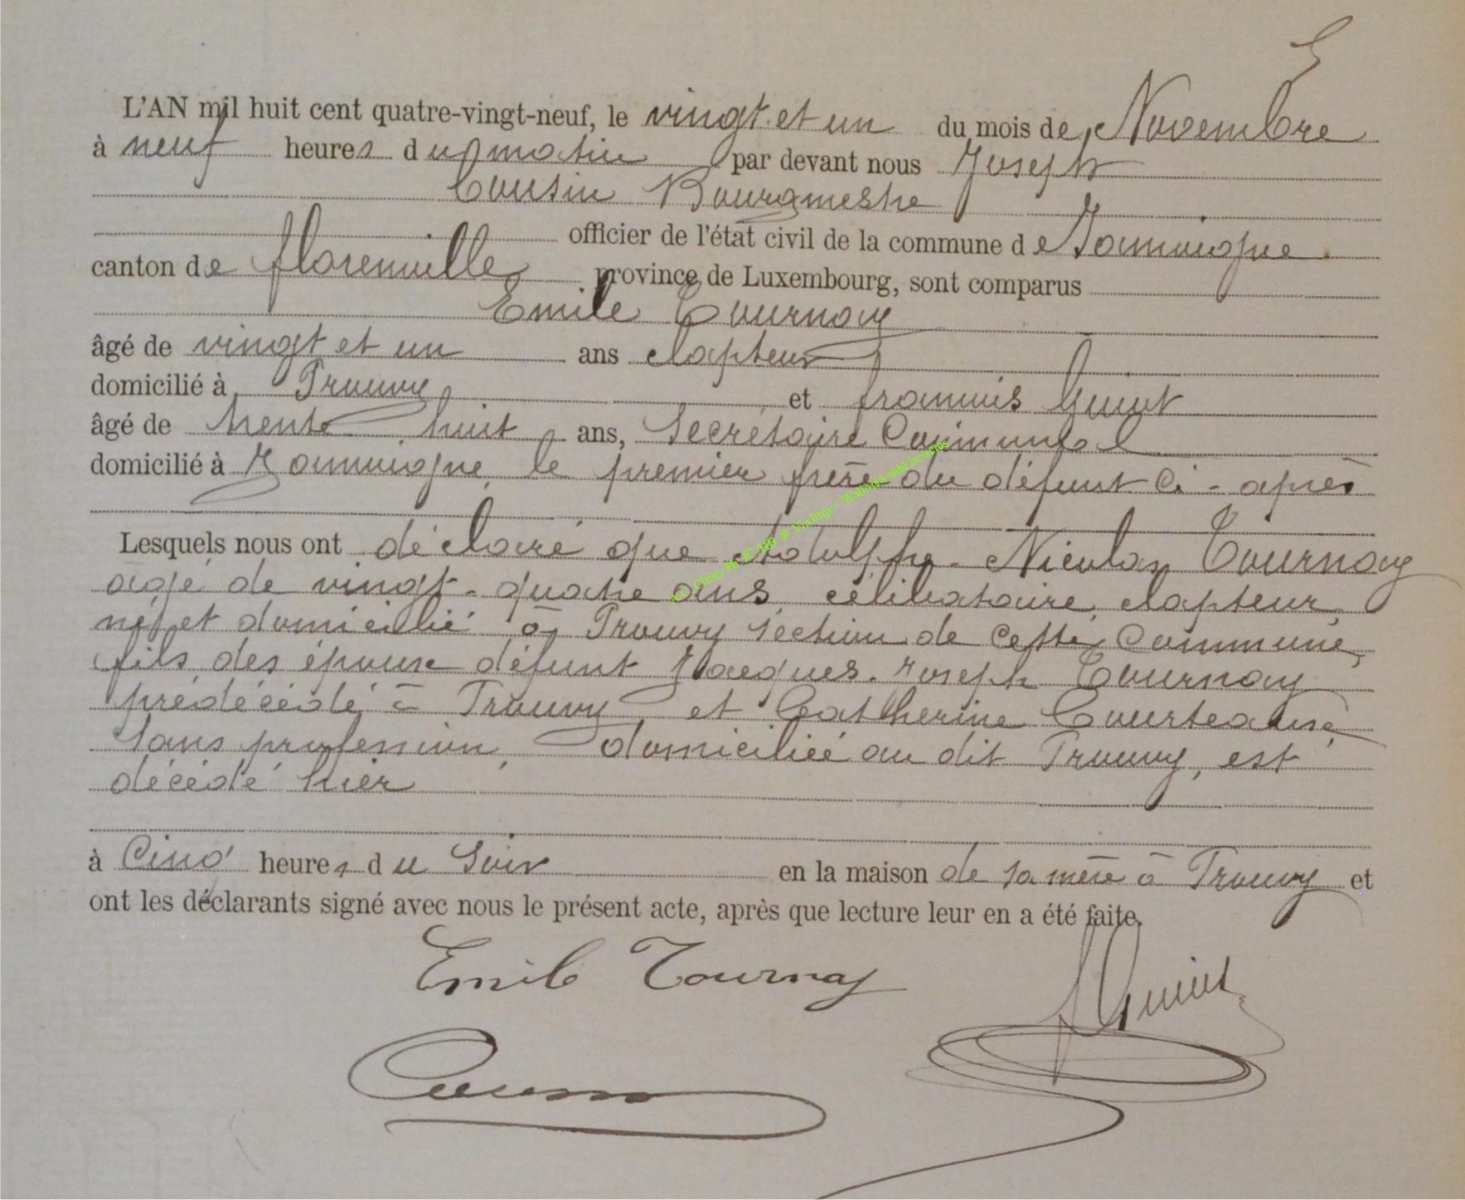 L'AN mil huit cent quatre-vingt-neuf, le vingt et un du mois de Novembre
à neuf heures du matin par devant nous Joseph
Cousin Bourgmestre
officier de l'état civil de la commune de Jamoigne
canton de florenville province de Luxembourg, sont comparus
Emile Tournay
âgé de vingt et un ans clapteur
domicilié à Prouvy et francois Guiot
âgé de trente huit ans, Secrétaire Communal
domicilié à Jamoigne, le premier frère du défunt ci-après
Lesquels nous ont déclaré que Adolphe-Nicolas Tournay
agé de vingt-quatre ans, célibataire, clapteur
né et domicilié à Prouvy section de cette Commune,
fils des époux défunt Jacques-Joseph Tournay
prédécédé à Prouvy, et Catherine
sans profession, domiciliée au dit Prouvy, est
décédé hier
à Cinq heures du Soir en la maison de sa mère à Prouvy et
ont les déclarants signé avec nous le présent acte, après que lecture leur en a été faite.
Emile Tournay
F Guiot
Cousin